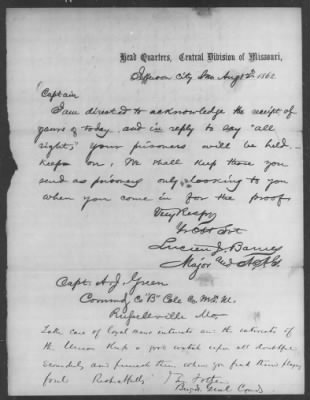 Head Quarters, Central Division of Missouri,
Jefferson City Mo Aug 12th 1862
Captain
I am directed to acknowledge the receipt of
yours of today. and in reply to say "all
right," your prisoners will be held.
Keep on, We shall keep those you
send as prisoners only looking to you
when you come in for the proof
Very Respy
Yr Obt Svt
Lucien J. Barnes
Major and A.A.G.
Capt. A. J. Green
Commdg Co "B" Cole Co M.S.M.
Russellville Mo.
Take care of loyal mens interests and the interests of
the Union Keep a good watch upon all doubtful
Scoundrels and punish them when you find them playing
foul Respectfully
Brig. Genl Comd